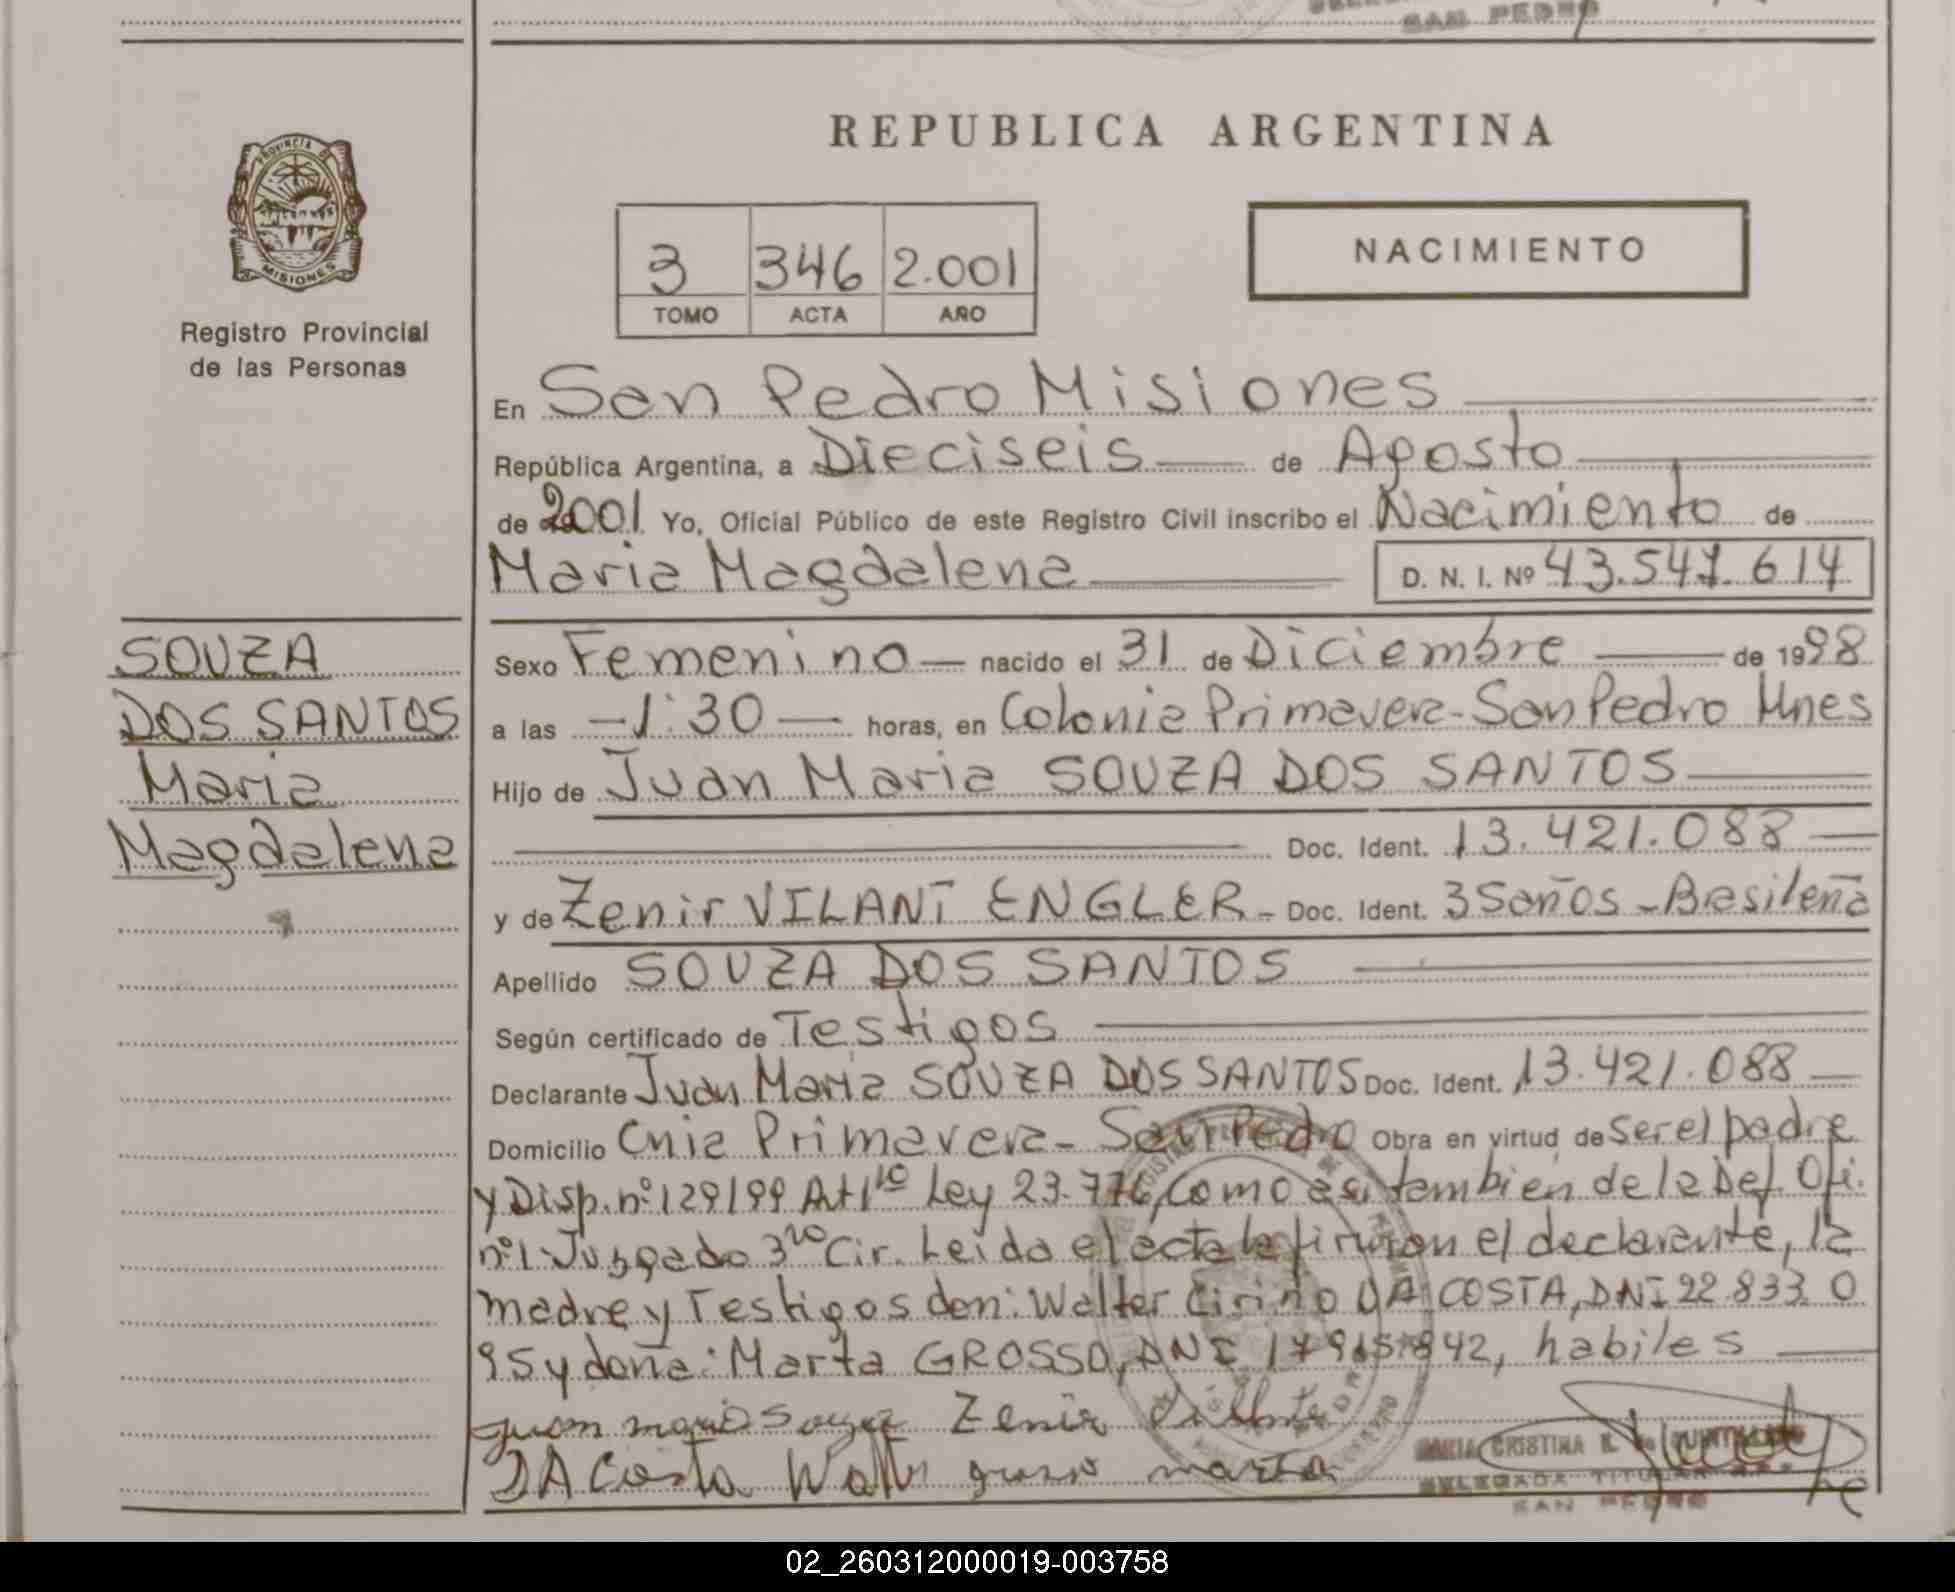 SAN PEDRO
PROVINCIA DE
MISIONES
Registro Provincial
de las Personas
REPUBLICA ARGENTINA
3 346 2.001
TOMO ACTA AÑO
NACIMIENTO
En San Pedro Misiones
República Argentina, a Dieciseis de Agosto
de 2001 Yo, Oficial Público de este Registro Civil inscribo el Nacimiento de
Maria Magdalena D. N. I. Nº 43.547.614
SOUZA
DOS SANTOS
Maria
Magdalena
Sexo Femenino nacido el 31 de Diciembre de 1998
a las 1:30 horas, en Colonia Primavera - San Pedro Mnes
Hijo de Juan Maria SOUZA DOS SANTOS
Doc. Ident. 13.421.088
y de Zenir VILANI ENGLER - Doc. Ident. 35 años - Brasileña
Apellido SOUZA DOS SANTOS
Según certificado de Testigos
Declarante Juan Maria SOUZA DOS SANTOS Doc. Ident. 13.421.088
Domicilio Cnia Primavera - San Pedro Obra en virtud de ser el padre
y Disp. nº 129/99 Art 1ro Ley 23.776, Como asi tambien de la Def. Ofi.
nº 1 Juzgado 3ro Cir. Leida el acta la firman el declarante, la
madre y Testigos don: Walter Cirino DA COSTA, DNI 22.833.0
95 y doña: Marta GROSSO, DNI 17.915.842, habiles
juan maria Souza Zenir
DA Costa Walter grosso marta
MARIA CRISTINA
DELEGADA TITULAR
SAN PEDRO
02_260312000019-003758